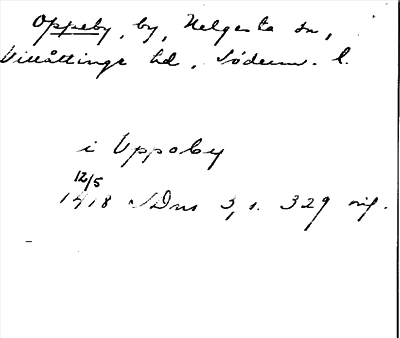 Oppeby, by, Helgesta sn,
Villåttinge hd, Söderm. l.
i Uppoby
12/5
1418 SDns 3, s. 329 orig.